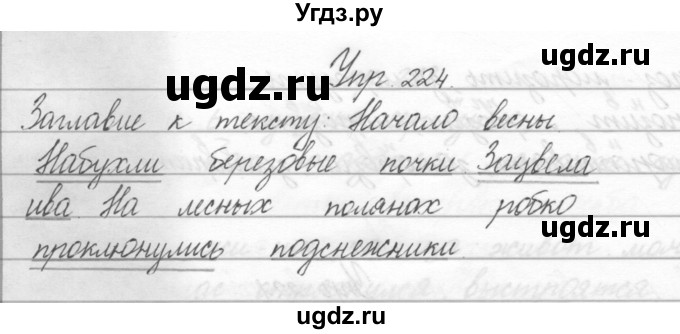 Угдз.ру
ugdz.ru
ugdz.ru
Упр. 224.
Заглавие к тексту: Начало весны.
Набухли березовые почки. Зацвела
ugdz.ru
ива. На лесных полянах робко
ugdz.ru
проклюнулись подснежники.
ugdz.ru
ugdz.ru
Угдз.ру